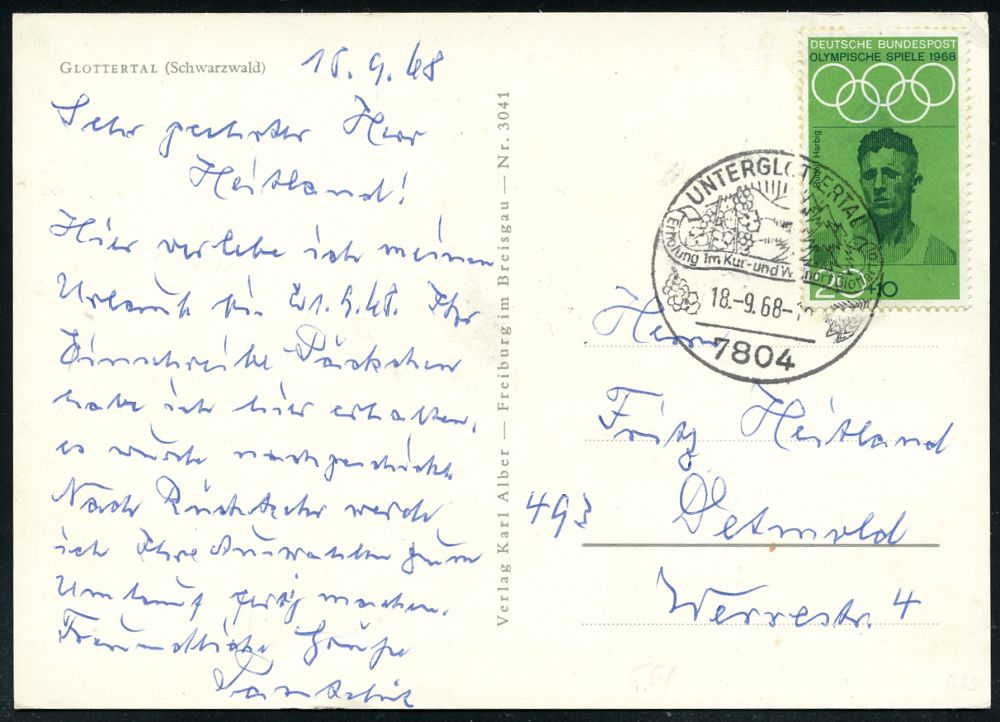 GLOTTERTAL (Schwarzwald)
18.9.68
Sehr geehrter Herr
Heitland!
Hier verlebe ich meinen
Urlaub bis 21.9.68. Ihr
Einschreibe Päckchen
habe ich hier erhalten,
es wurde nachgeschickt.
Nach Rückkehr werde
ich Ihre Auswahlen zum
Umlauf fertig machen.
Freundliche Grüße
Verlag Karl Alber — Freiburg im Breisgau — Nr. 3041
DEUTSCHE BUNDESPOST
OLYMPISCHE SPIELE 1968
Rudolf Harbig
20+10
UNTERGLOTTERTAL
Erholung im Kur- und
18.-9.68-
7804
Herrn
Fritz Heitland
493 Detmold
Werrestr. 4